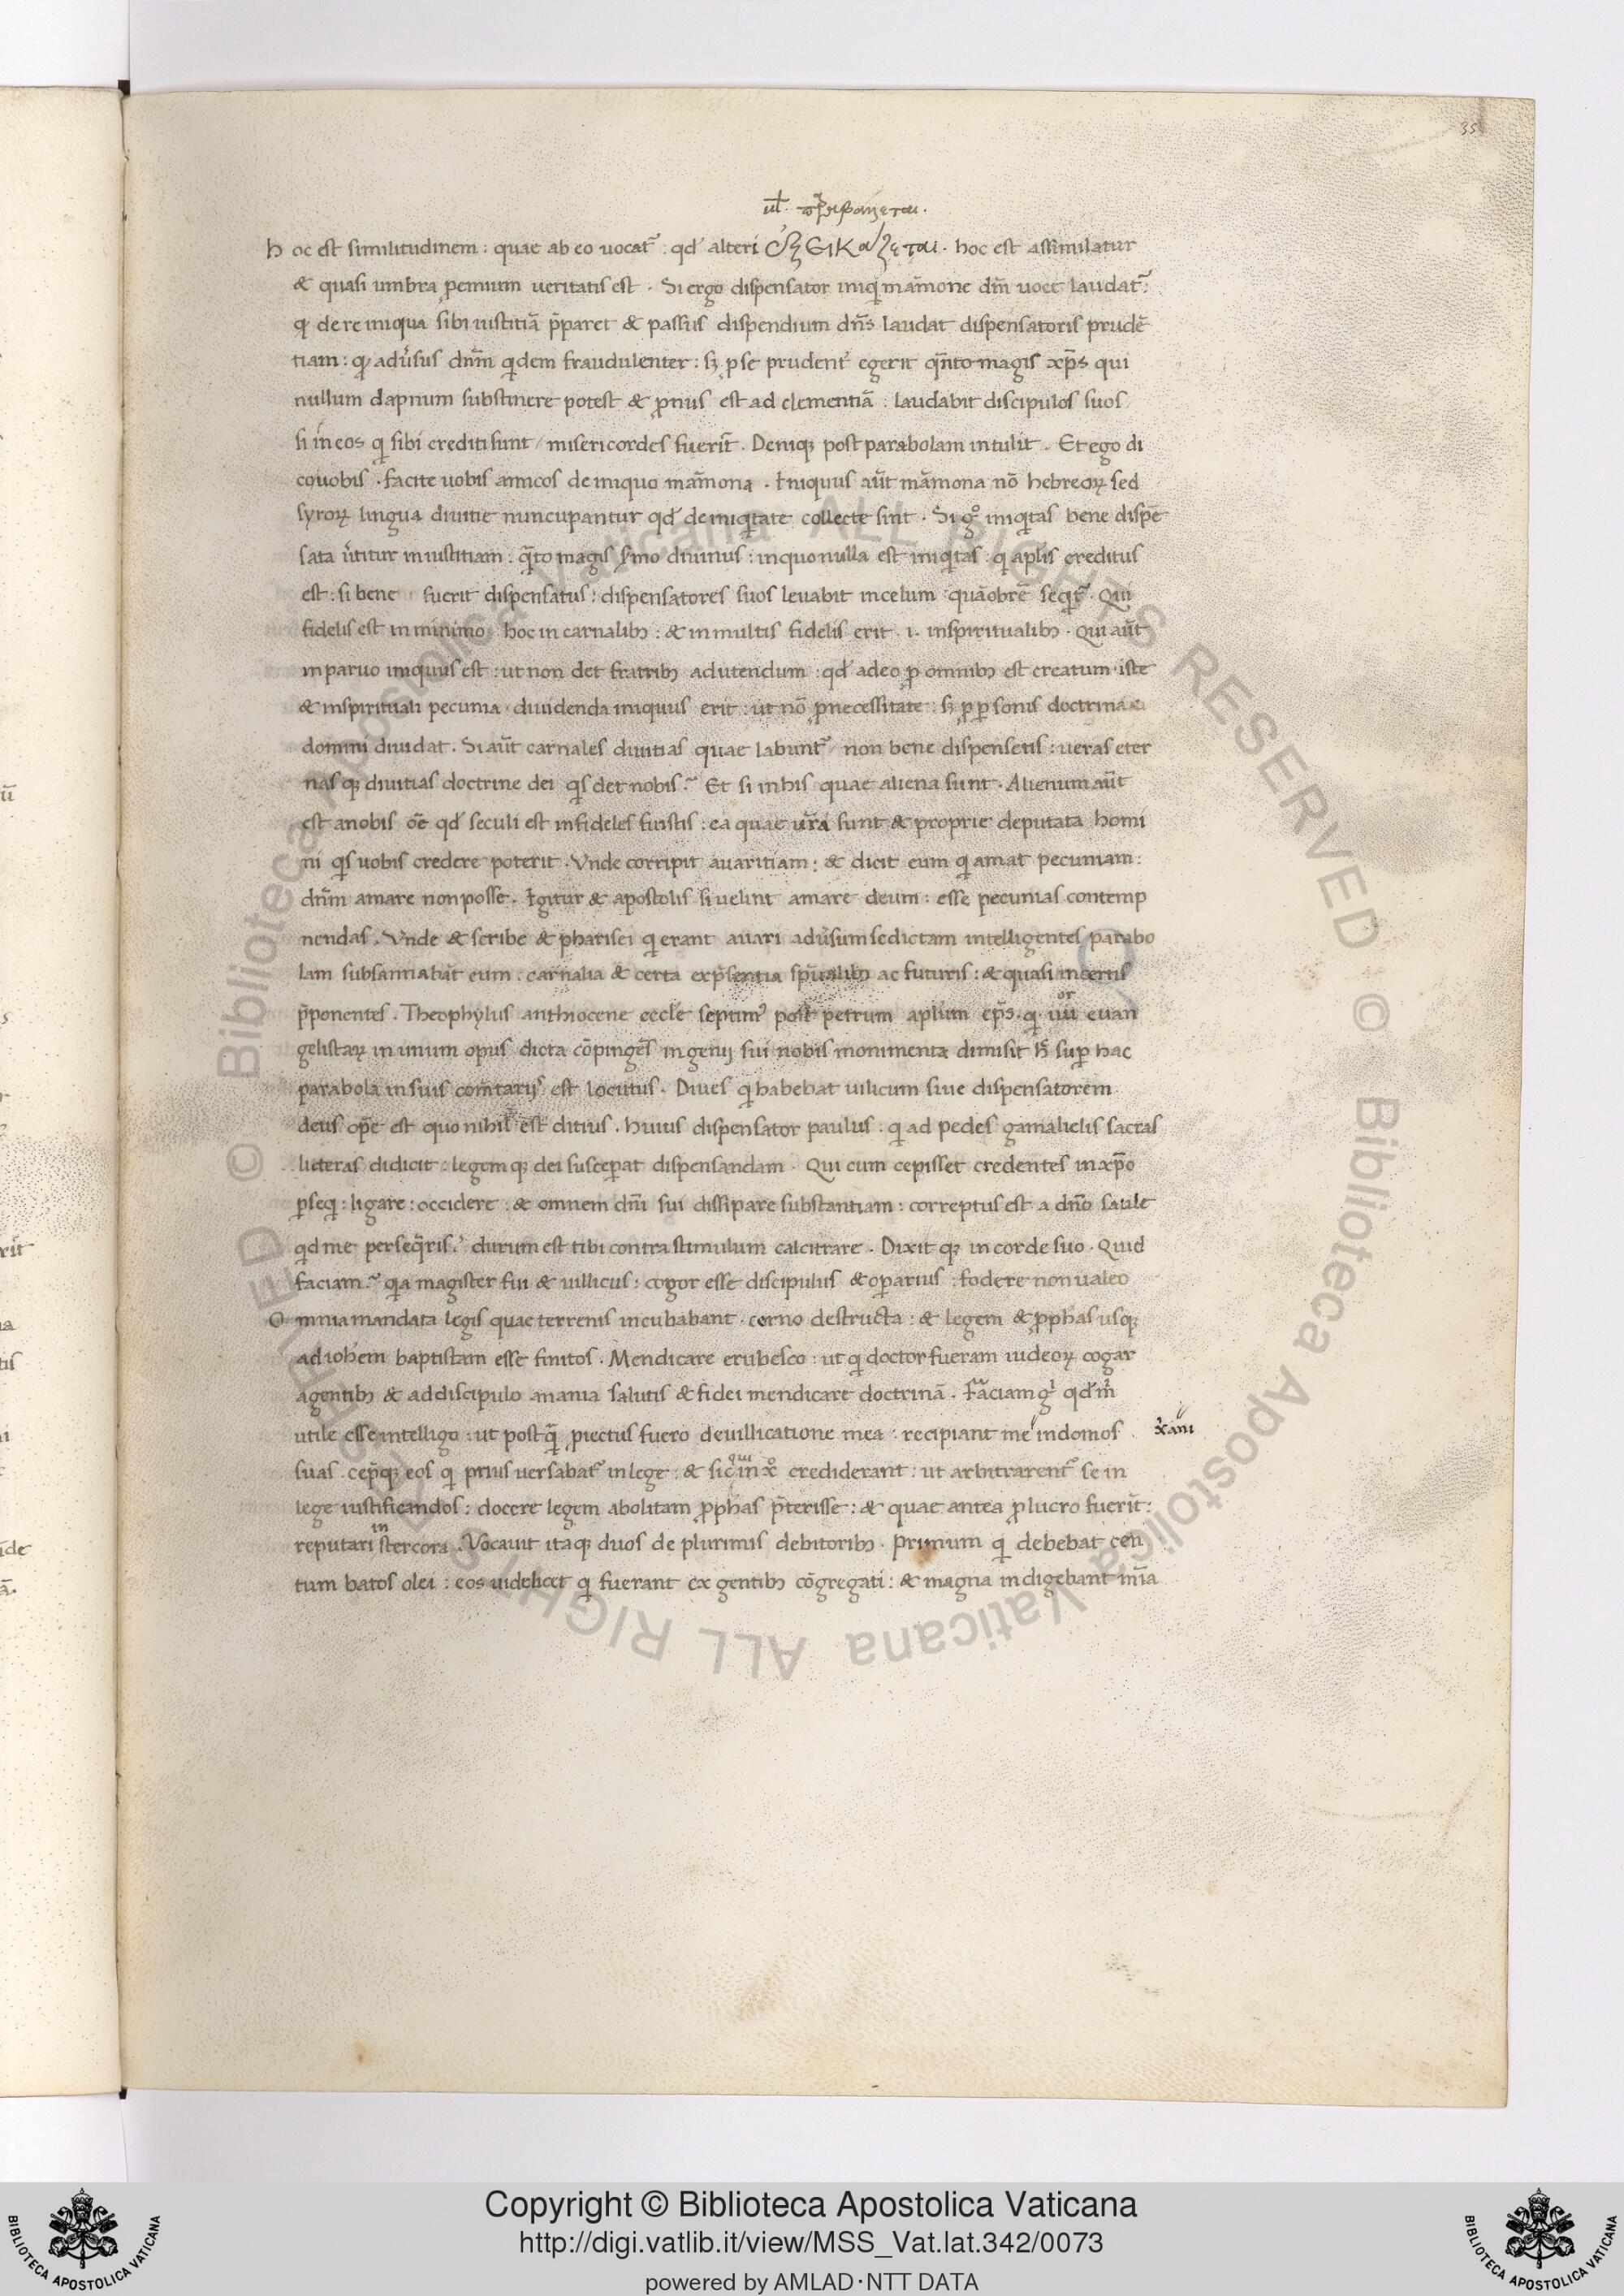 35
hoc est similitudinem : quae ab eo uocat᷑ : qd' alteri hoc est assimilatur
& quasi umbra p̄emium ueritatis est . Si ergo dispensator iniqui mam̄one dn̄i uoce laudat᷑ :
qd de re iniqua sibi iustitiā p̄paret & passus dispendium dn̄s laudat dispensatoris prudē
tiam : qd adu'sus dn̄m qidem fraudulenter : s; p se prudent᷑ egerit qn̄to magis xp̄s qui
nullum dapnum substinere potest & p̱nus est ad clementiā : laudabit discipulos suos
si in eos qi sibi crediti sunt / misericordes fuerīt . Deniq; post parabolam intulit . Et ego di
co uobis . facite uobis amicos de iniquo mam̄ona . Iniquus aūt mam̄ona nō hebreoꝝ sed
syroꝝ lingua diuitie nuncupantur qd' de iniqitate collecte sint . Si g° iniqitas bene dispē
sata u'titur in iustitiam : qāto magis s'mo diuinus : in quo nulla est iniqitas : qi apl̄is creditus
est : si bene fuerit dispensatus : dispensatores suos leuabit in celum quāobrē seqit᷑ . Qui
fidelis est in minimo hoc in carnalib; : & in multis fidelis erit . i . in spiritualib; . Qui aūt
in paruo iniquus est : ut non det fratrib; ad utendum : qd' a deo p omnib; est creatum . iste
& in spirituali pecunia diuidenda iniquus erit : ut nō p necessitate : s; p p̱sonis doctrinā
domini diuidat . Si aūt carnales diuitias quae labunt᷑ non bene dispensetis : ueras eter
nasq; diuitias doctrine dei qis det nobis ? Et si in his quae aliena sunt . Alienum aūt
est a nobis ōe qd' seculi est infideles fuistis : ea quae ur̄a sunt & proprie deputata homi
ni qis uobis credere poterit . Vnde corripit auaritiam : & dicit eum qi amat pecuniam :
dn̄m amare non posse . Igitur & apostolis si uelint amare deum : esse pecunias contemp
nendas . Vnde & scribe & pharisei qi erant auari adu'sum se dictam intelligentes parabo
lam subsannabāt eum . carnalia & certa & p̄sentia spūalib; ac futuris : & quasi incertis
p̄ponentes . Theophylus anthiocene eccl̄e septim' post petrum apl̄um ep̄s . qi .iiii.or euan
gelistaꝝ in unum opus dicta cōpingēs ingenij sui nobis monimenta dimisit h' sup hac
parabola in suis com̄tarijs est locutus . Diues qi habebat uilicum siue dispensatorem
deus op̄s est quo nihil est ditius . huius dispensator paulus : qi ad pedes gamalielis sacras
litteras didicit : legemq; dei susceperat dispensandam . Qui cum cepisset credentes in xp̄o
p̱seqi : ligare : occidere : & omnem dn̄i sui dissipare substantiam : correptus est a dn̄o saule
qd me perseqeris ? durum est tibi contra stimulum calcitrare . Dixitq; in corde suo . Quid
faciam ? qia magister fui & uillicus : cogor esse discipulus & op̱arius : fodere non ualeo
Omnia mandata legis quae terrenis incubabant . cerno destructa : & legem & p̱phas usq;
ad ioh̄em baptistam esse finitos . Mendicare erubesco : ut qi doctor fueram iudeoꝝ cogar
a gentib; & a discipulo anania salutis & fidei mendicare doctrinā . Faciam g' qd' m̄
utile esse intelligo : ut postq̄ p̱iectus fuero de uillicatione mea : recipiant me in domos
x̄ani
suas . cepitq; eos qi prius uersabāt᷑ in lege : & sic in x° crediderant : ut arbitrarent᷑ se in
lege iustificandos : docere legem abolitam p̱phas p̄terisse : & quae antea p lucro fuerīt :
reputari in stercora . Vocauit itaq; duos de plurimis debitorib; . primum qi debebat cen
tum batos olei : eos uidelicet qi fuerant ex gentib; cōgregati : & magna indigebant mīa
Copyright © Biblioteca Apostolica Vaticana
http://digi.vatlib.it/view/MSS_Vat.lat.342/0073
powered by AMLAD·NTT DATA
BIBLIOTECA APOSTOLICA VATICANA
BIBLIOTECA APOSTOLICA VATICANA
© Biblioteca Apostolica Vaticana ALL RIGHTS RESERVED © Biblioteca Apostolica Vaticana ALL RIGHTS RESERVED